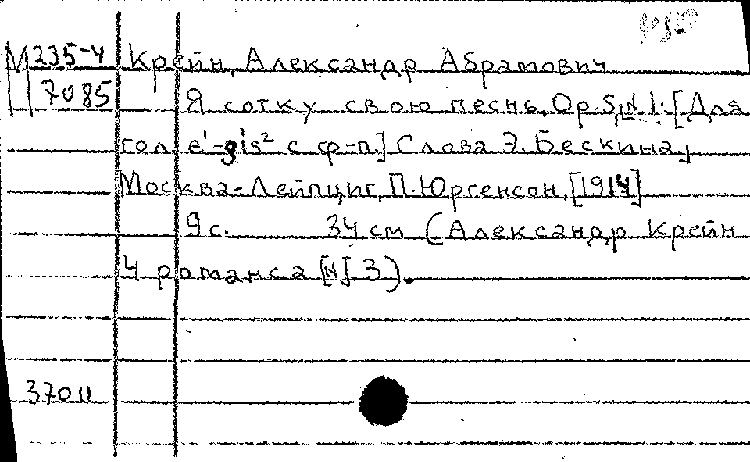 М 235-4 Крейн, Александр Абрамович
7085 Я сотку свою песнь. Op. 5, N 1. [Для
гол. e¹-gis² с ф-п.] Слова Э. Бескина,
Москва-Лейпциг, П. Юргенсон, [1914]
9 с. 34 см (Александр Крейн
4 романса [N] 3).
37011